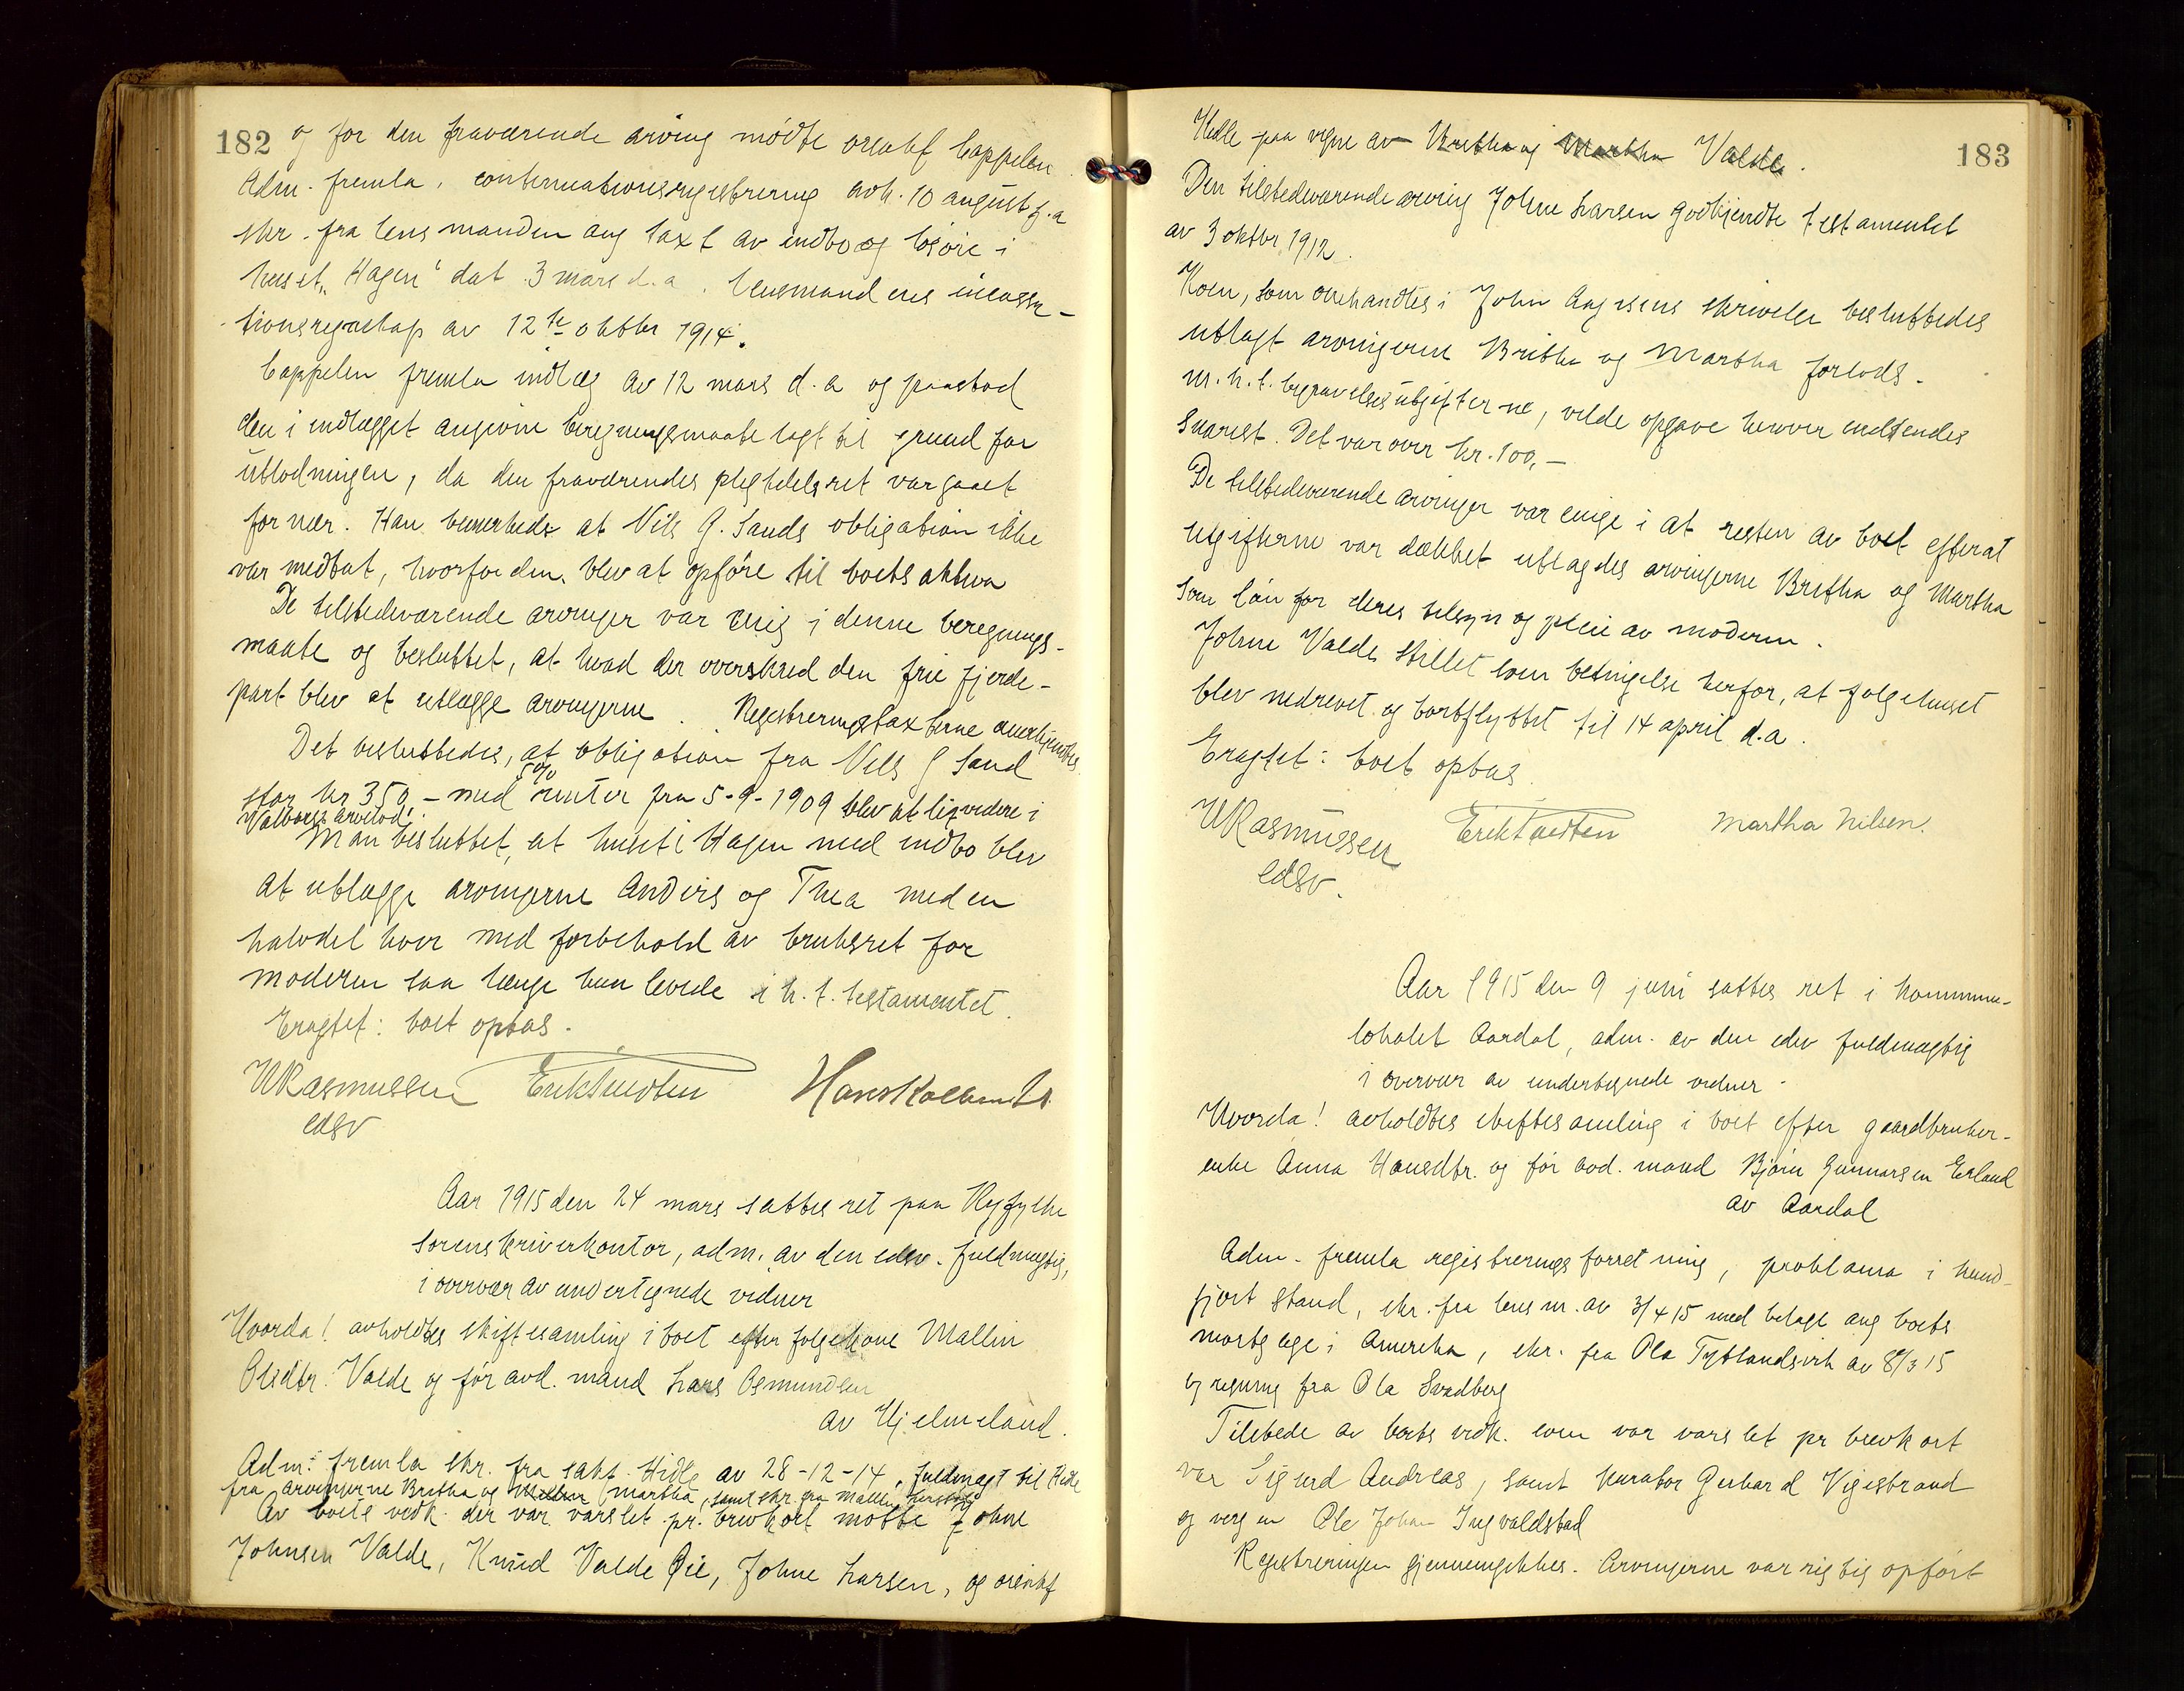 182
og for den fraværende arving mødte orsakf Cappelen.
Adm. fremla, conternationsregistrering avh. 10 august f.a
skr. fra lensmanden ang taxt av indbo og løsøre i
huset "Hagen" dat 3 mars d.a. Lensmandens incassa-
tionsregnskap av 12te oktbr 1914.
Cappelen fremla indlæg av 12 mars d.a og paastod
den i indlægget angivne beregningsmaate lagt til grund for
utlodningen, da den fraværendes pligtdelsret var gaaet
for nær. Han bemerkede at Nils G. Sands obligation ikke
var medtat, hvorfor den blev at opføre til boets aktiva
De tilstedeværende arvinger var enig i denne beregnings-
maate og besluttet, at hvad der overskred den frie fjerde-
part blev at utlægge arvingerne. Registreringstaxterne anerkjendtes.
Det besluttedes, at obligation fra Nils G Sand
stor kr 350,- med 5% renter fra 5-9-1909 blev at liqvidere i
Valborgs arvelod.
Man besluttet, at huset i Hagen med indbo blev
at utlægge arvingerne Anders og Thea med en
halvdel hver med forbehold av bruksret for
moderen saa længe hun levede i h. t. testamentet.
Eragtet: boet optas.
W Rasmussen Erik Tvedten Hans Kolbents
edsv
Aar 1915 den 24 mars sattes ret paa Ryfylke
sorenskriverkontor, adm. av den edsv. fuldmægtig,
i overvær av undertegnede vidner
Hvorda! avholdtes skiftesamling i boet efter følgekone Mallin
Olsdtr. Valde og før avd. mand Lars Osmundsen
av Hjelmeland.
Adm. fremla skr. fra sakf. Hidle av 28-12-14, fuldmagt til Hidle
fra arvingerne Britha og Martha, samt skr. fra Mallin
Av boets vedk. der var varslet pr. brevkort møtte Johne
Johnsen Valde, Knud Valde Øie, Johne Larsen, og orsakf
183
Hidle paa vegne av Britha og Martha Valde.
Den tilstedeværende arving Johne Larsen godkjendte testamentet
av 3 oktbr 1912.
Koen, som omhandles i John Aagesens skrivelse besluttedes
utlagt arvingerne Britha og Martha forlods.
m. h. t. begravelsesutgifterne, vilde opgave herover indsendes
snarest. Det var over kr. 100,-
De tilstedeværende arvinger var enige i at resten av boet efterat
utgifterne var dækket utlagdes arvingerne Britha og Martha
som løn for deres tilsyn og pleie av moderen.
Johne Valde stillet som betingelse herfor, at følgehuset
blev nedrevet og bortflyttet til 14 april d.a.
Eragtet: boet optas.
W Rasmussen Erik Tvedten Martha Nilsen.
edsv.
Aar 1915 den 9 juni sattes ret i kommune-
lokalet Aardal, adm. av den edsv fuldmægtig
i overvær av undertegnede vidner.
Hvorda! avholdtes skiftesamling i boet efter gaardbruker-
enke Anna Hansdtr. og før avd. mand Bjørn Gunnarsen Erland
av Aardal
Adm. fremla registreringsforretning, proklama i kund-
gjort stand, skr. fra lensm. av 3/4 15 med bilage ang boets
mortgage i Amerika, skr. fra Ola Tytlandsvik av 8/3 15
og regning fra Ola Svadberg
Tilstede av boets vedk. som var varslet pr brevkort
var Sigurd Andreas, samt kurator Gerhard Vigestrand
og vergen Ole Johan Ingvaldstad
Registreringen gjennemgikkes. Arvingerne var rigtig opført